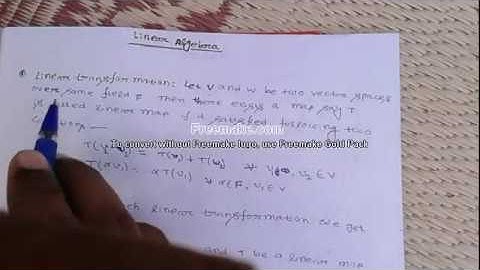 Linear Algebra
① Linear transformation: Let V and W be two vector spaces
over same field F Then there exists a map say T
is called linear map if it satisfied following two
Freemake.com
To convert without Freemake logo, use Freemake Gold Pack
T(αv₁) = αT(v₁) ∀ α∈F, v₁∈V
linear transformation we get
and T be a linear map